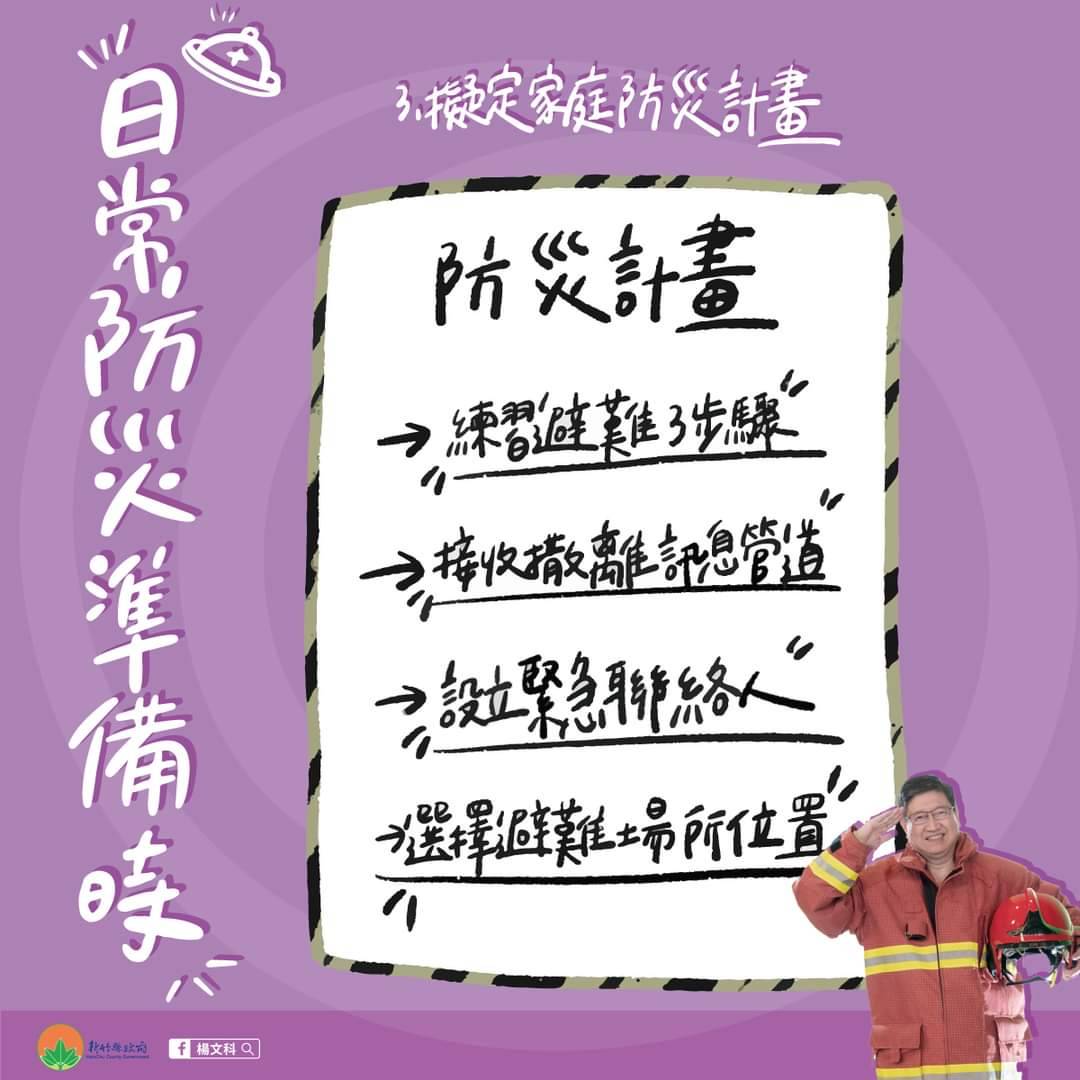 日常防災準備時
3.擬定家庭防災計畫
防災計畫
→練習避難3步驟
→接收撤離訊息管道
→設立緊急聯絡人
→選擇避難場所位置
新竹縣政府
HsinChu County Government
f 楊文科